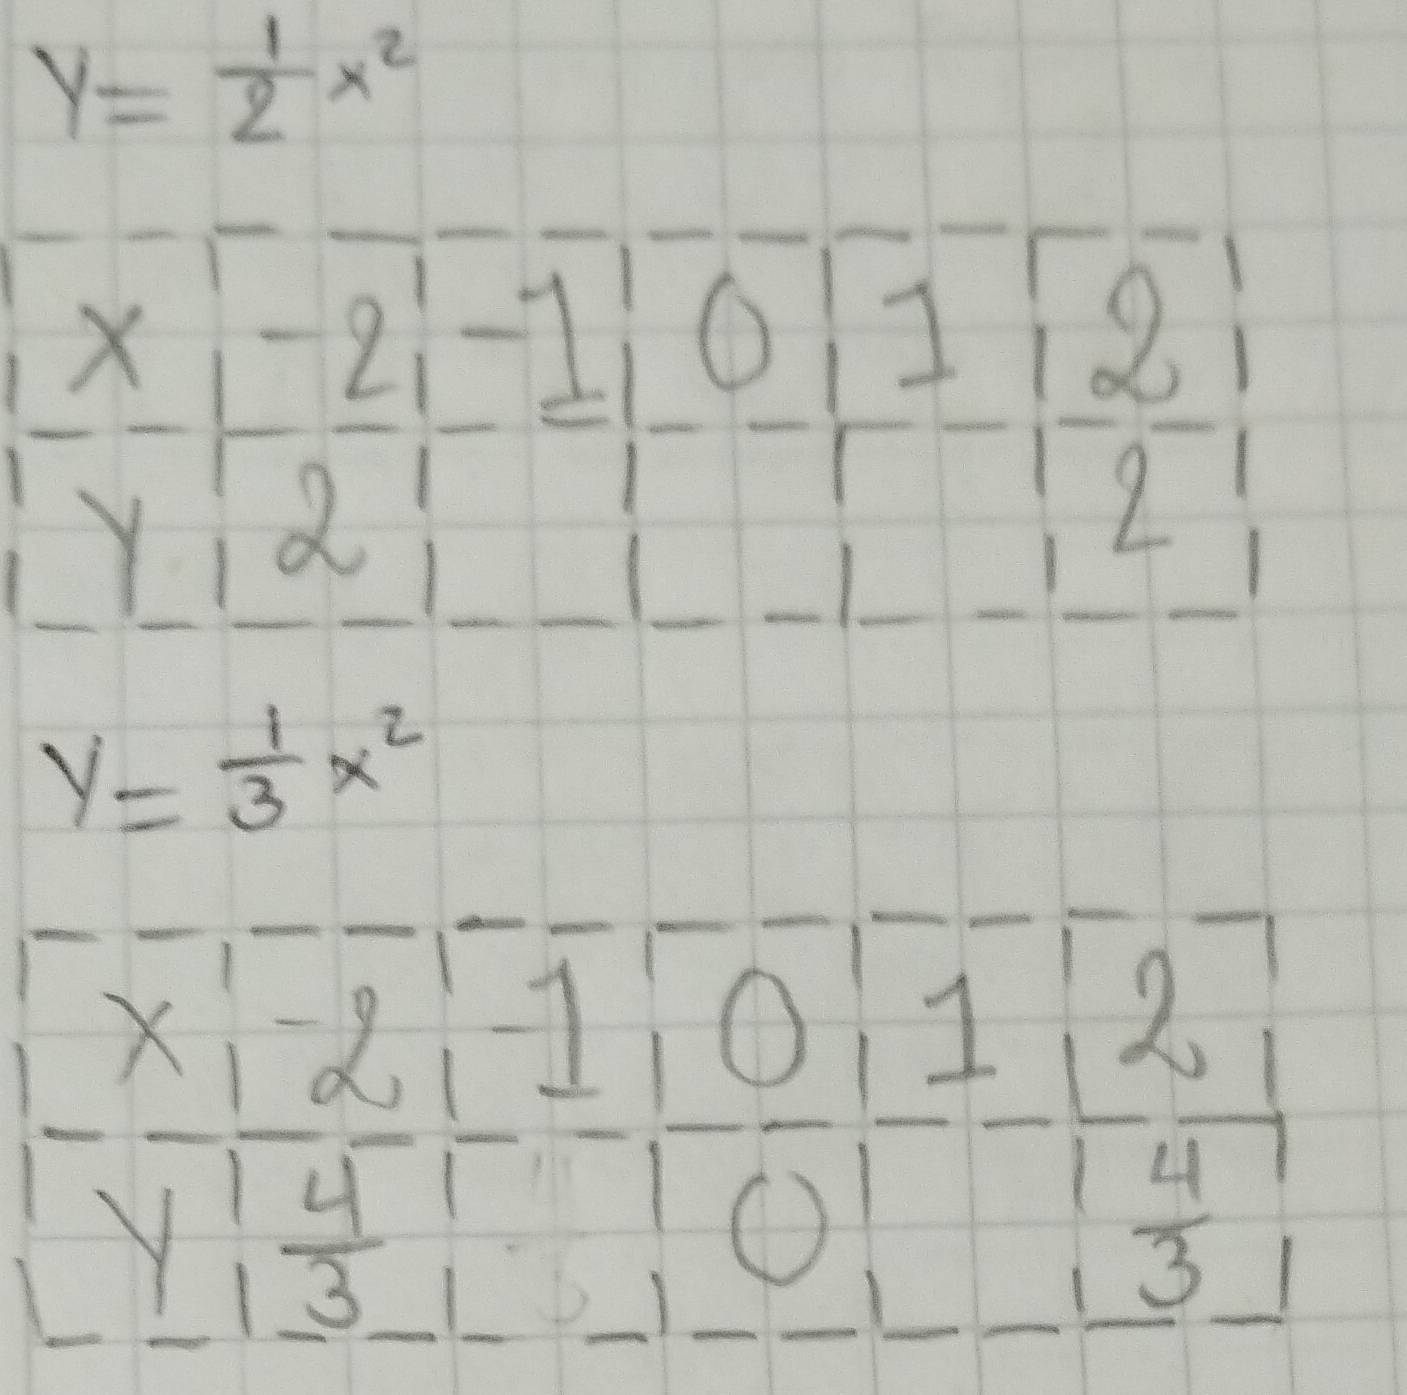 y = 1/2 x²
x -2 -1 0 1 2
y 2 2
y = 1/3 x²
x -2 -1 0 1 2
y 4/3 0 4/3